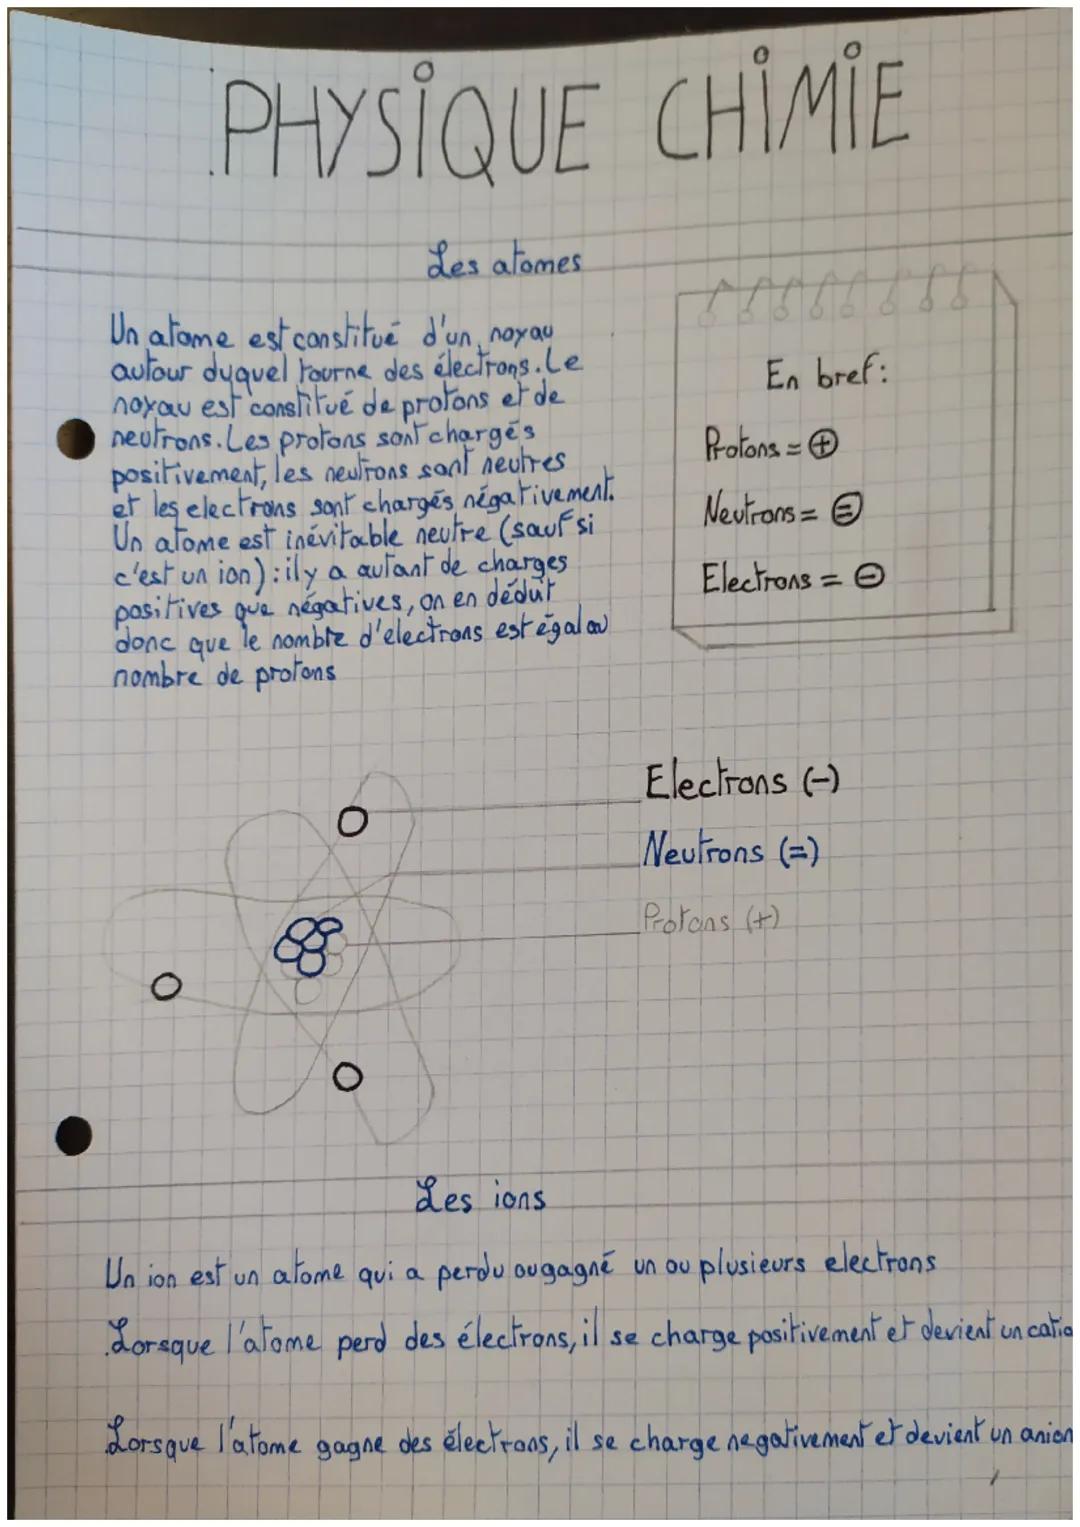 PHYSIQUE CHIMIE
Les atomes
Un atome est constitué d'un noyau
autour duquel tourne des électrons. Le
noyau est constitué de protons et de
neutrons. Les protons sont chargés
positivement, les neutrons sont neutres
et les electrons sont chargés négativement.
Un atome est inévitable neutre (sauf si
c'est un ion) : il y a autant de charges
positives que négatives, on en déduit
donc que le nombre d'electrons est égal au
nombre de protons
En bref :
Protons = ⊕
Neutrons = ⊜
Electrons = ⊖
Electrons (-)
Neutrons (=)
Protons (+)
Les ions
Un ion est un atome qui a perdu ou gagné un ou plusieurs electrons
Lorsque l'atome perd des électrons, il se charge positivement et devient un catio
Lorsque l'atome gagne des électrons, il se charge negativement et devient un anion